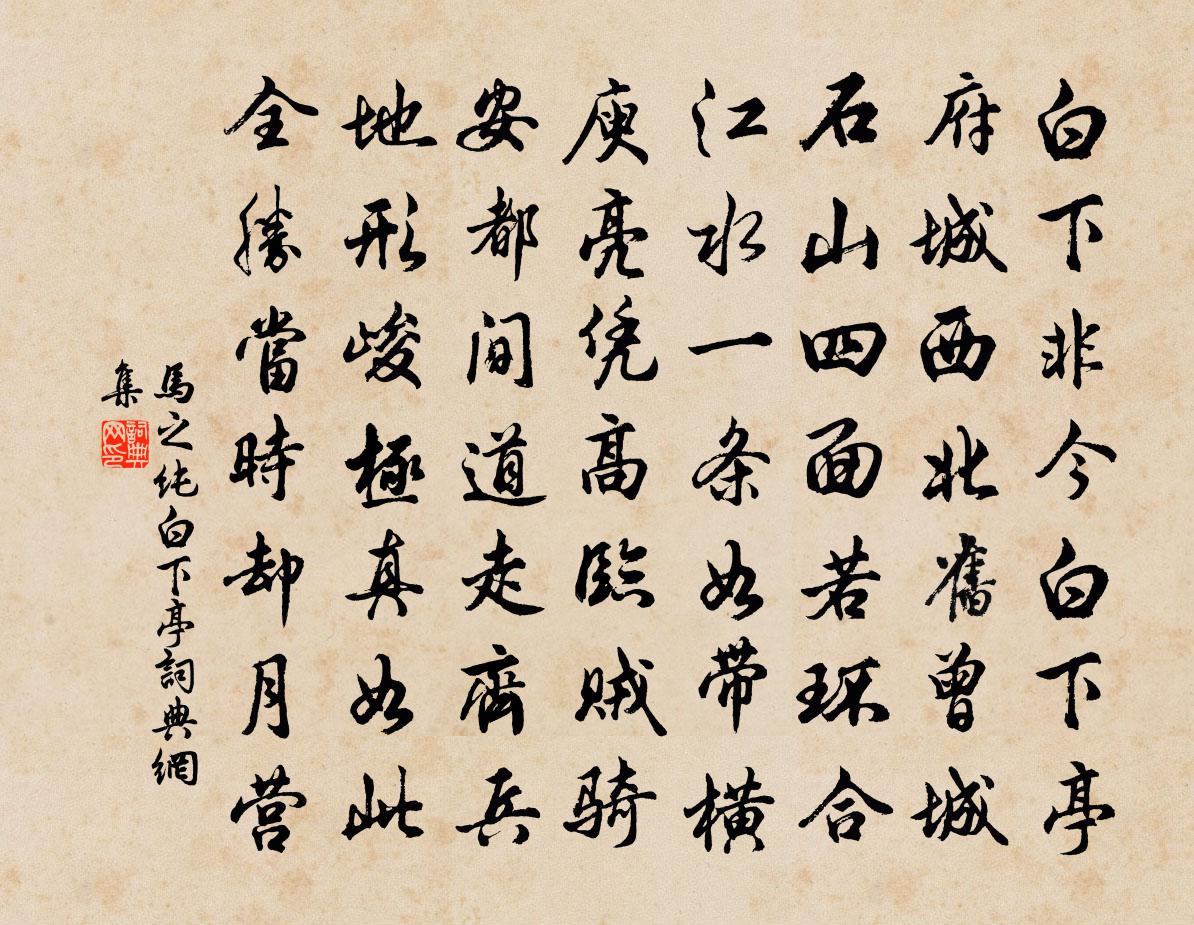 白下非今白下亭
府城西北舊曾城
石山四面若环合
江水一条如带橫
庾亮凭高臨賊騎
安都間道走齊兵
地形峻極真如此
全勝當時却月营
馬之純白下亭詞典網
集
詞典网印